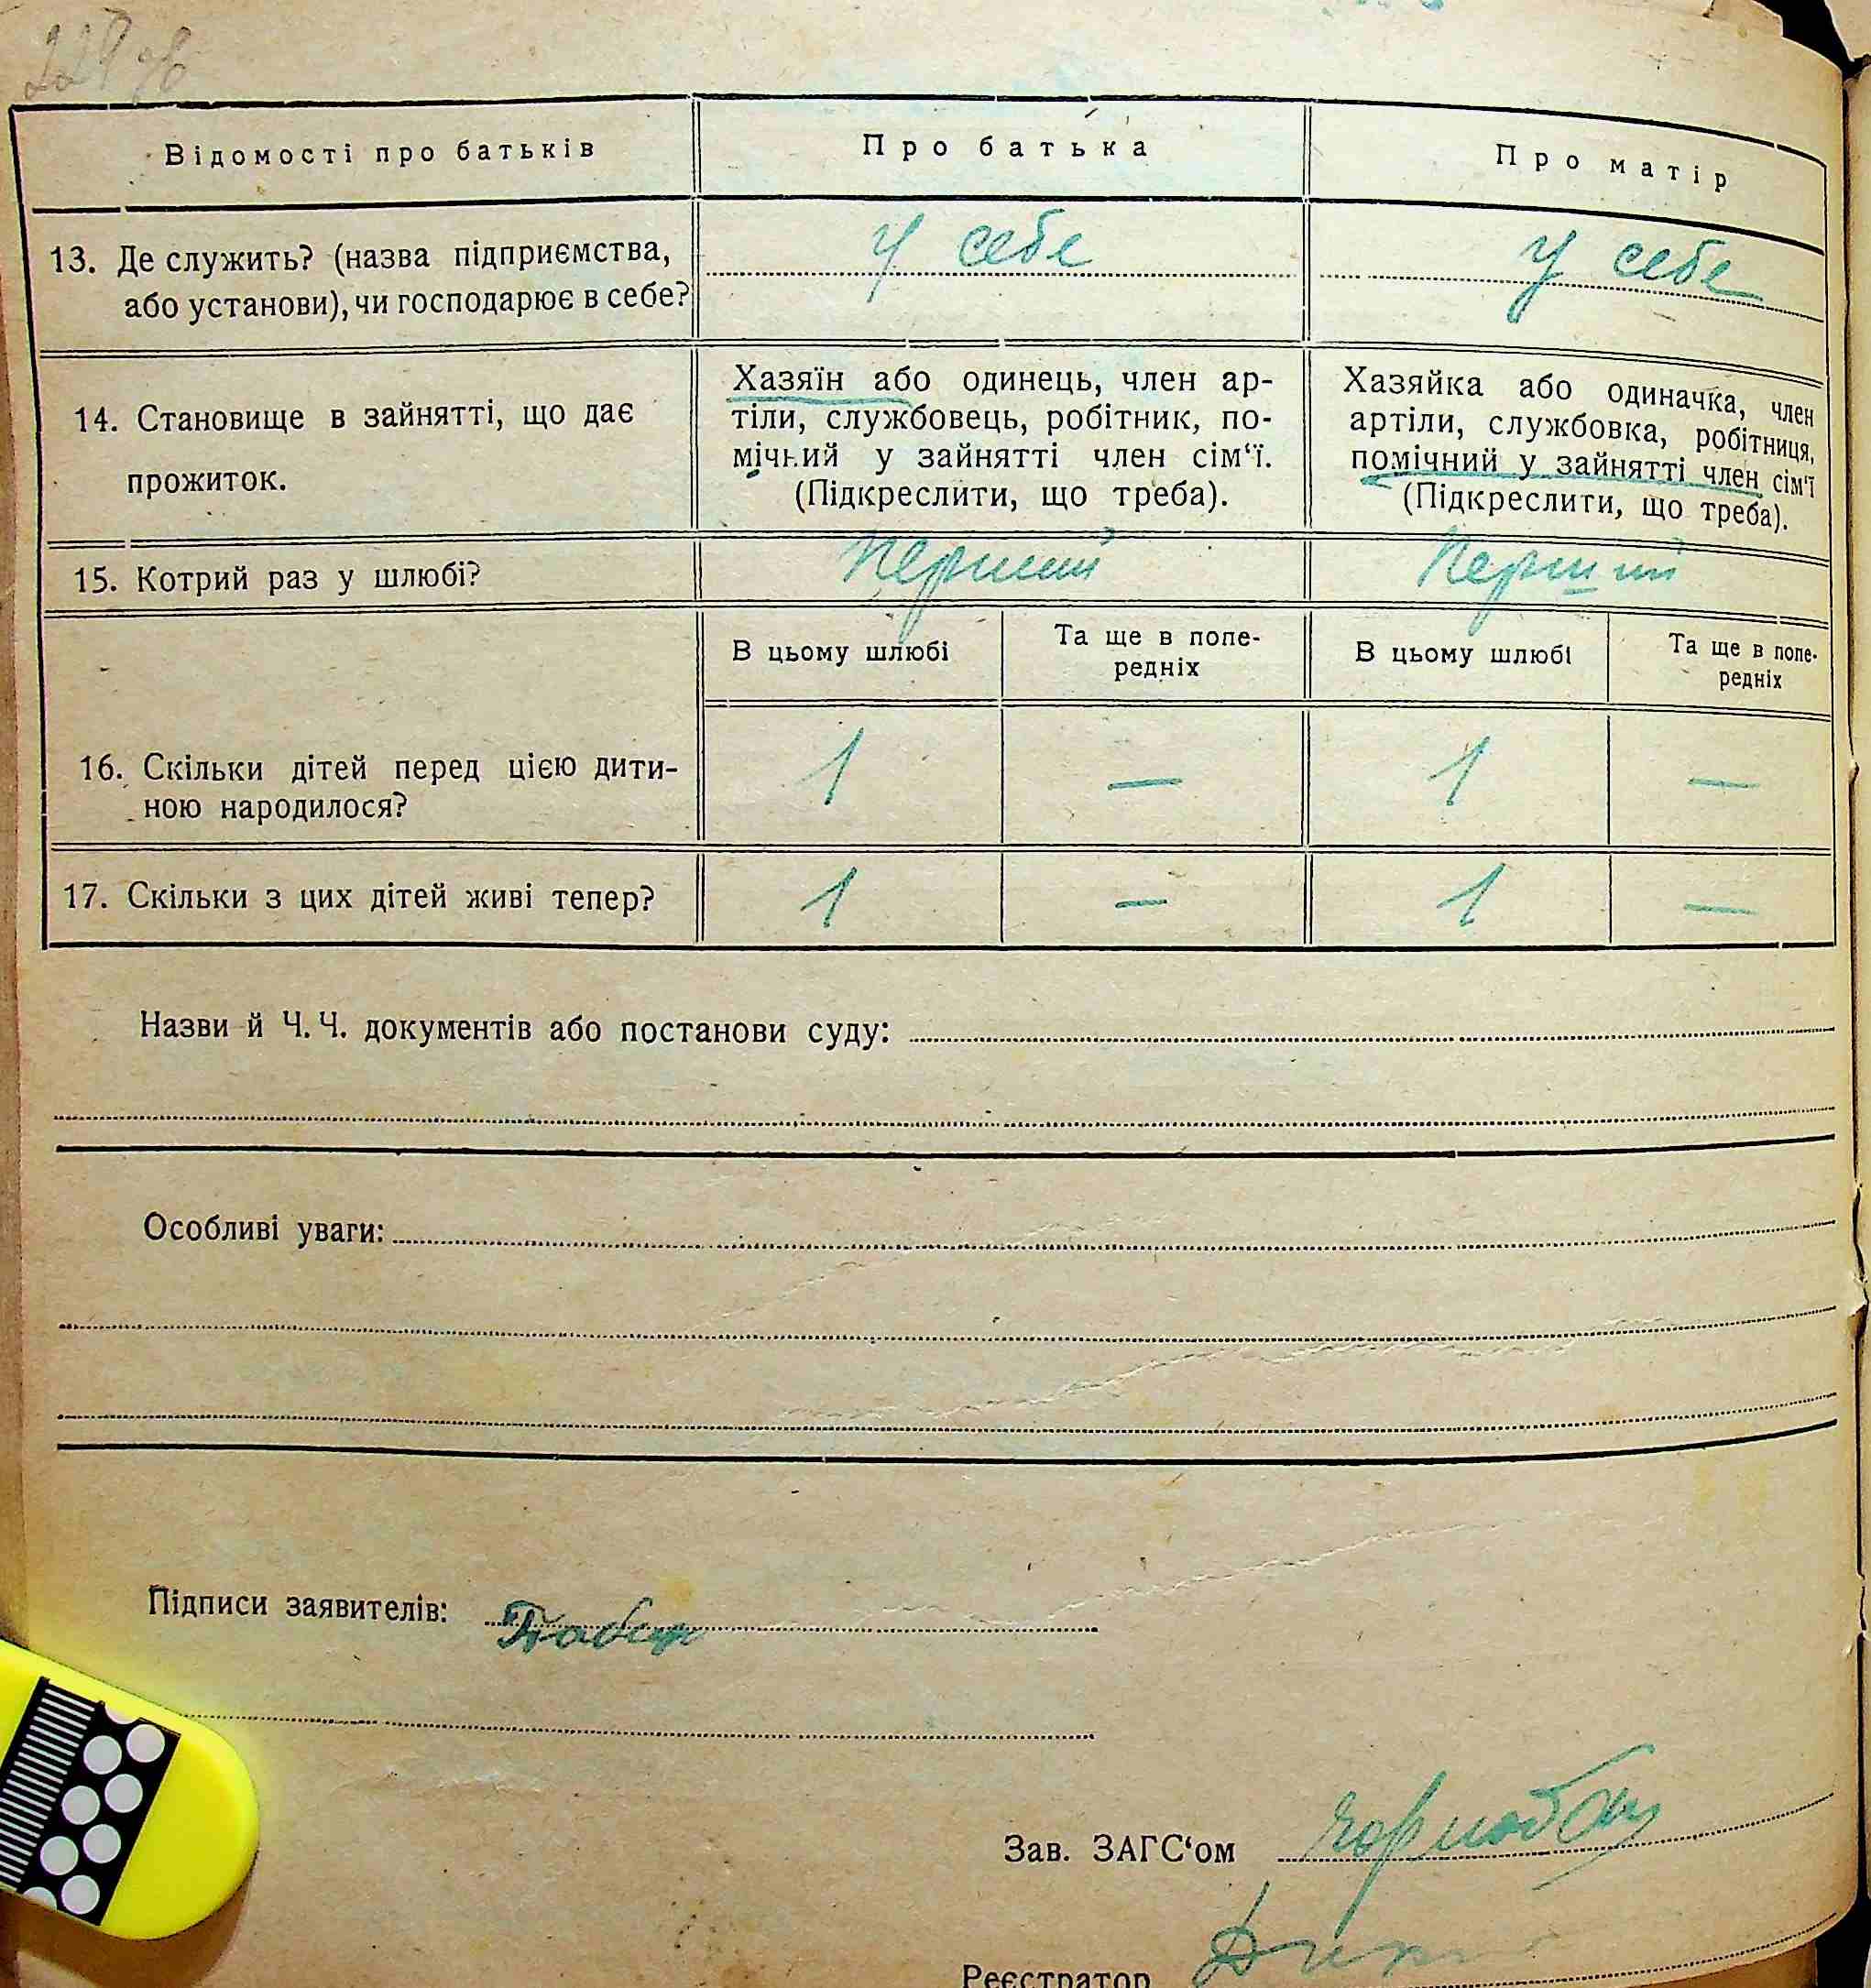 Відомості про батьків
Про батька
Про матір
13. Де служить? (назва підприємства,
або установи), чи господарює в себе?
У себе
У себе
14. Становище в зайнятті, що дає
прожиток.
Хазяїн або одинець, член ар-
тіли, службовець, робітник, по-
мічний у зайнятті член сім‘ї.
(Підкреслити, що треба).
Хазяйка або одиначка, член
артіли, службовка, робітниця,
помічний у зайнятті член сім‘ї
(Підкреслити, що треба).
15. Котрий раз у шлюбі?
Перший
Перший
В цьому шлюбі
Та ще в попе-
редніх
В цьому шлюбі
Та ще в попе-
редніх
16. Скільки дітей перед цією дити-
ною народилося?
1
—
1
—
17. Скільки з цих дітей живі тепер?
1
—
1
—
Назви й Ч. Ч. документів або постанови суду:
Особливі уваги:
Підписи заявителів:
Зав. ЗАГС‘ом
Реєстратор